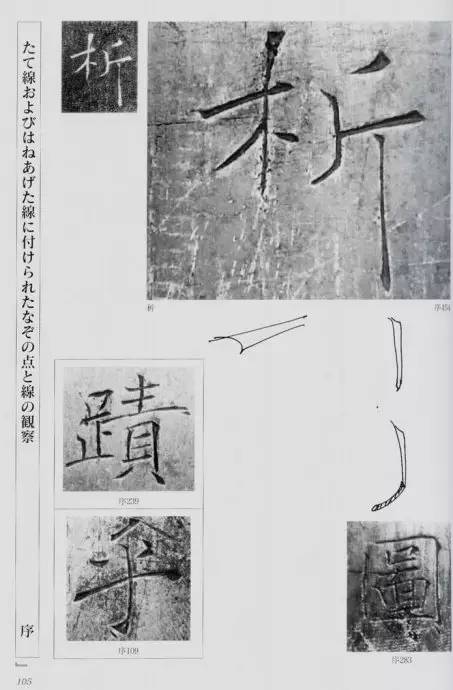 たて線およびはねあげた線に付けられたなぞの点と線の観察
序
105
析
析
析
序454
蹟
序239
序109
圖
序283